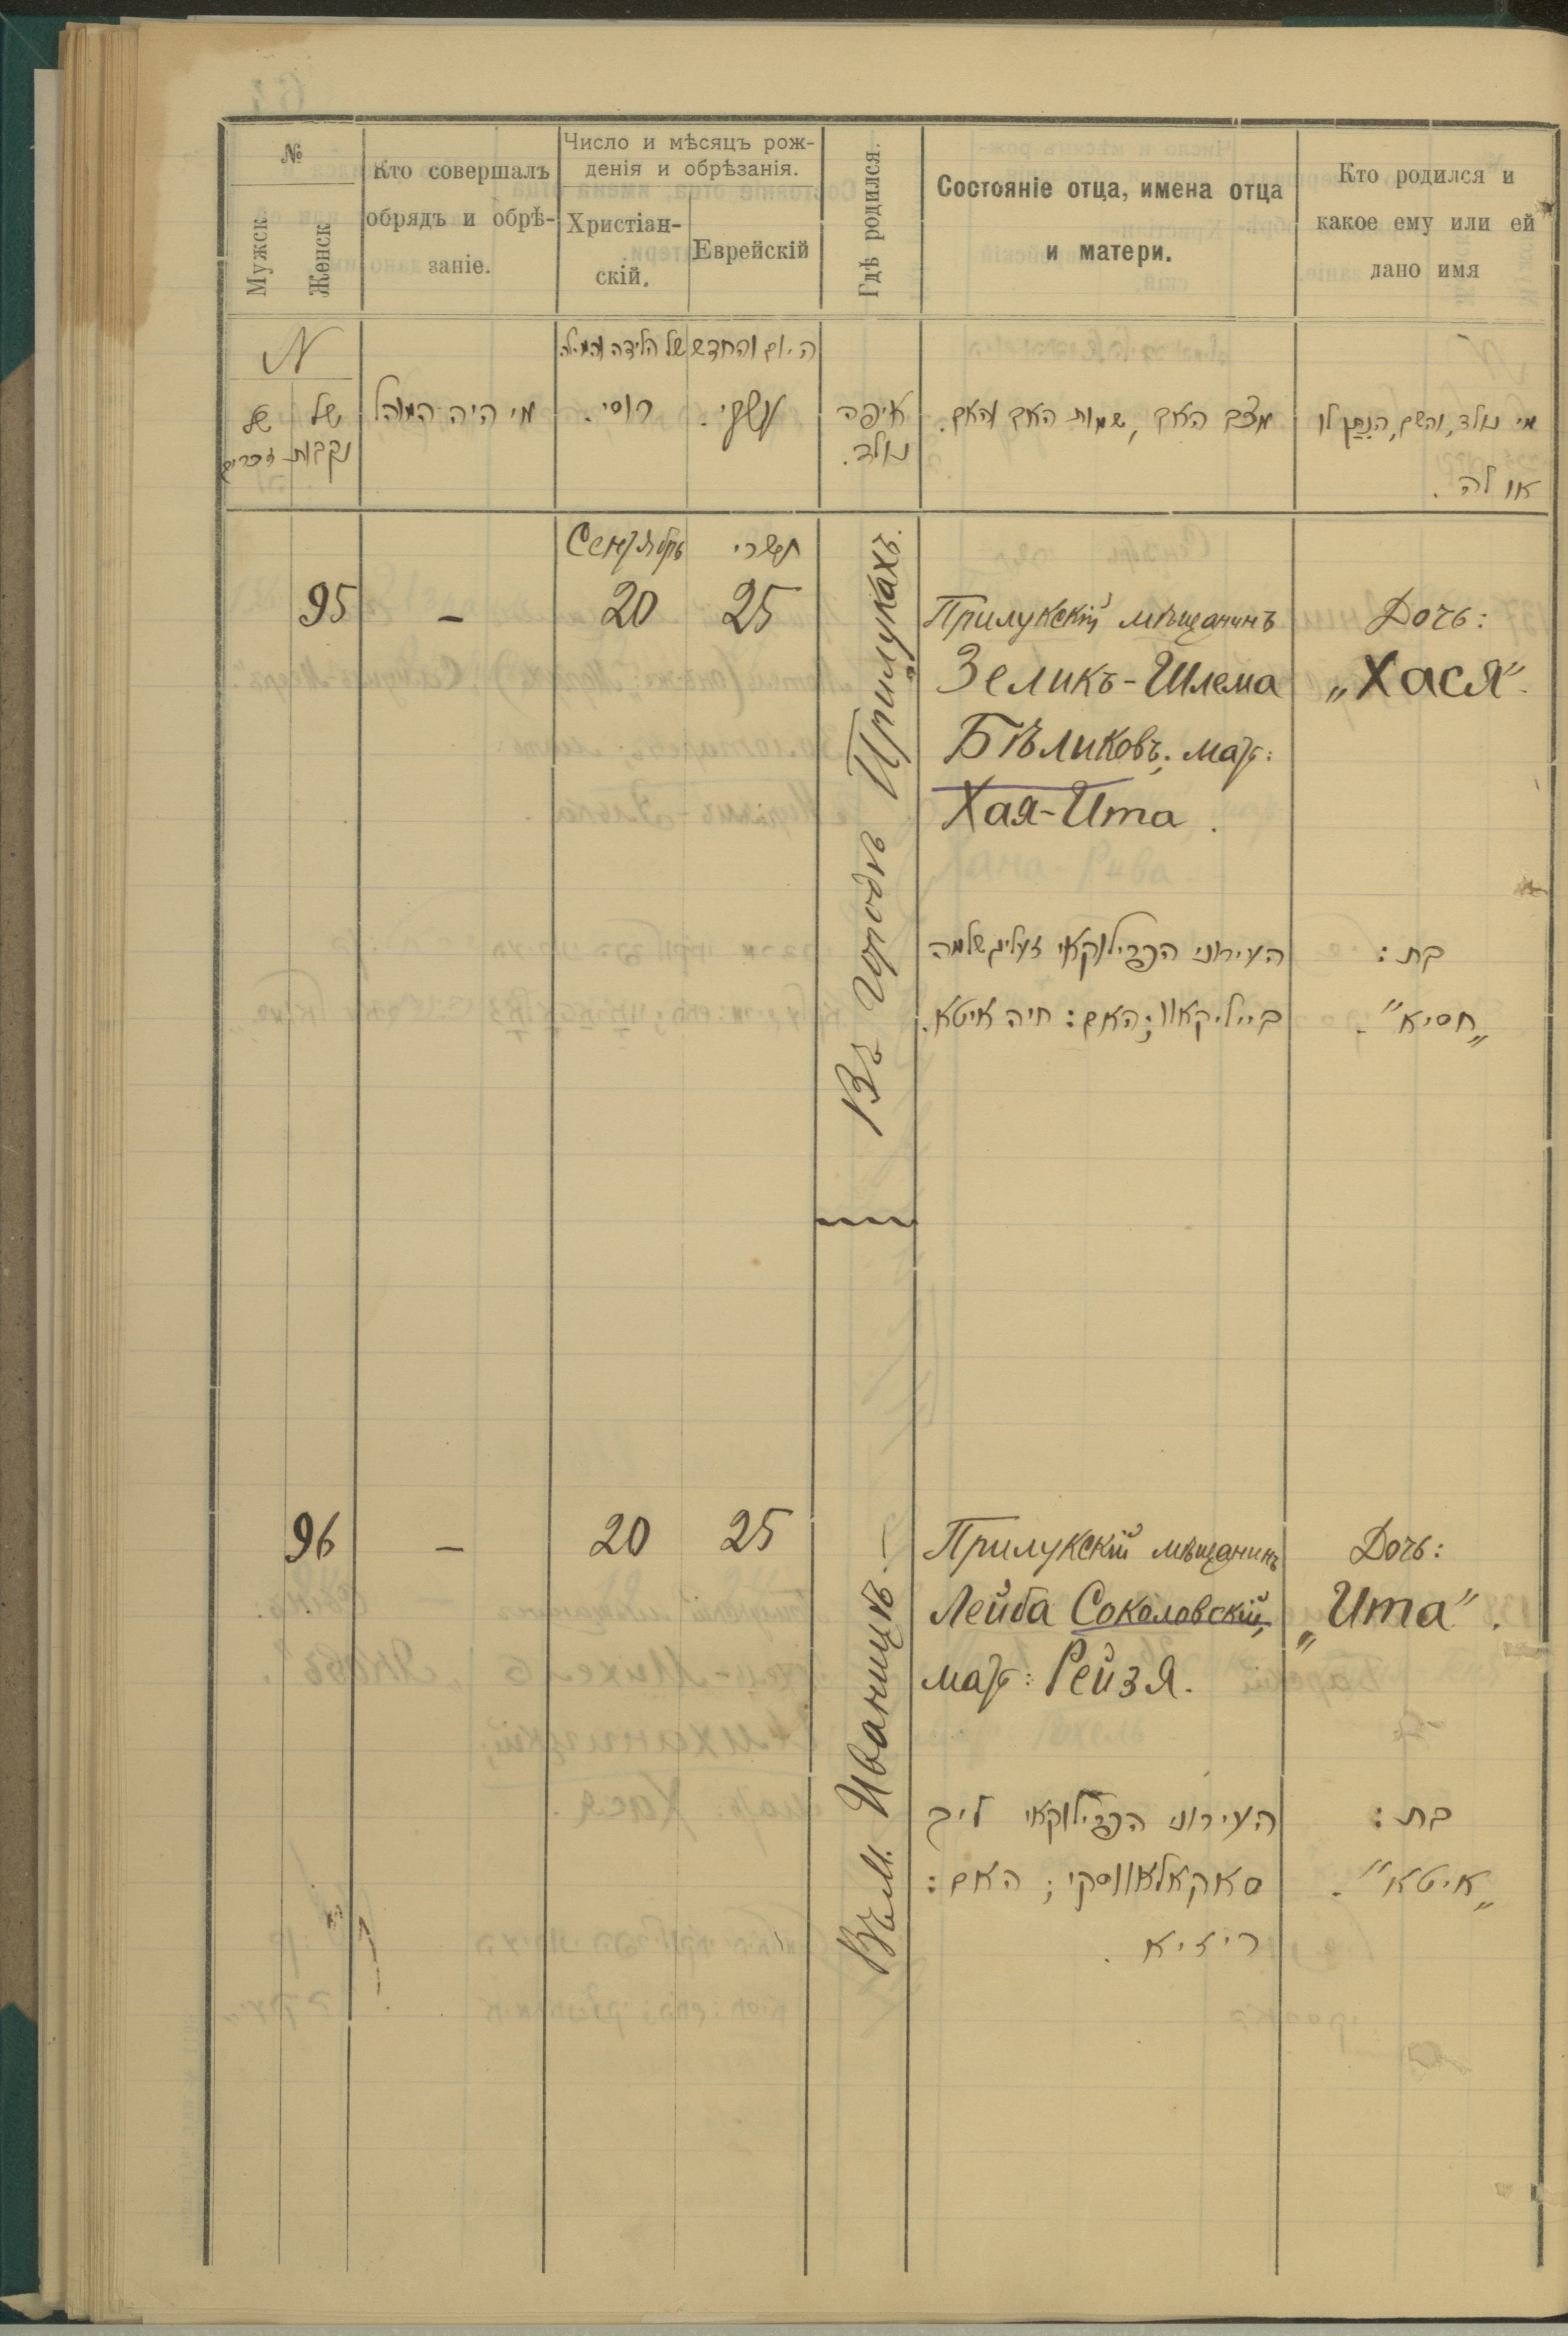 №
Мужск.
Женск.
Кто совершалъ
обрядъ и обрѣ-
заніе.
Число и мѣсяцъ рож-
денія и обрѣзанія.
Христіан-
скій.
Еврейскій
Гдѣ родился.
Состояніе отца, имена отца
и матери.
Кто родился и
какое ему или ей
дано имя
N
של
זכרים
של
נקבות
מי היה המוהל
היום והחדש של הלידה והמילה
רוסי.
איפה
נולד.
מצב האב, שמות האב והאם.
מי נולד, והשם, הנתן לו
או לה.
Сентябрь
תשרי
95
-
20
25
Въ городѣ Прилукахъ.
Прилукскій мѣщанинъ
Зеликъ-Шлема
Бѣликовъ; мат:
Хая-Ита.
Дочь:
„Хася".
העירוני הפרילוקאי זעליג שלמה
בייליקאוו; האם: חיה איטא.
בת:
„חסיא".
96
-
20
25
Въ м. Иваницѣ.
Прилукскій мѣщанинъ
Лейба Соколовскій,
мат: Рейзя.
Дочь:
„Ита".
העירוני הפרילוקאי ליב
סאקאלאווסקי; האם:
ריזיא.
בת:
„איטא".